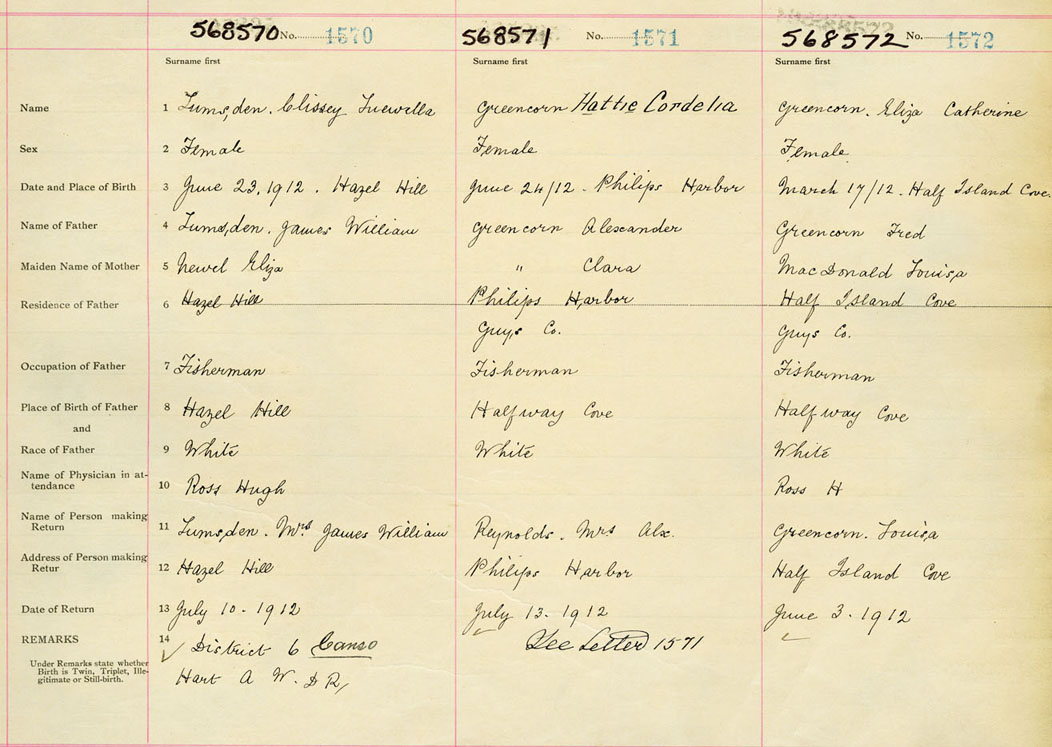 568570 No. 1570 568571 No. 1571 568572 No. 1572
Surname first Surname first Surname first
Name 1 Lumsden. Clissey Luewella Greencorn Hattie Cordelia Greencorn. Eliza Catherine
Sex 2 Female Female Female
Date and Place of Birth 3 June 23, 1912. Hazel Hill June 24/12 - Philips Harbor March 17/12 - Half Island Cove.
Name of Father 4 Lumsden. James William Greencorn Alexander Greencorn Fred
Maiden Name of Mother 5 Newel Eliza " Clara MacDonald Louisa
Residence of Father 6 Hazel Hill Philips Harbor Half Island Cove
Guys Co. Guys Co.
Occupation of Father 7 Fisherman Fisherman Fisherman
Place of Birth of Father 8 Hazel Hill Halfway Cove Halfway Cove
and
Race of Father 9 White White White
Name of Physician in at-
tendance 10 Ross Hugh Ross H
Name of Person making
Return 11 Lumsden. Mrs James William Reynolds. Mrs Alx. Greencorn. Louisa
Address of Person making
Retur 12 Hazel Hill Philips Harbor Half Island Cove
Date of Return 13 July 10 - 1912 July 13 - 1912 June 3 - 1912
REMARKS 14 District 6 Canso See Letter 1571
Under Remarks state whether
Birth is Twin, Triplet, Ille-
gitimate or Still-birth. Hart A W. D R,